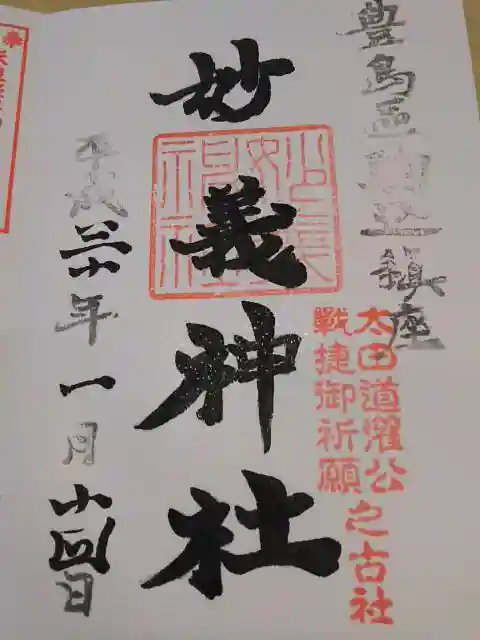 豊島區駒込鎮座
太田道灌公之古社
戰捷御祈願
妙義神社
平成三十年一月廿四日